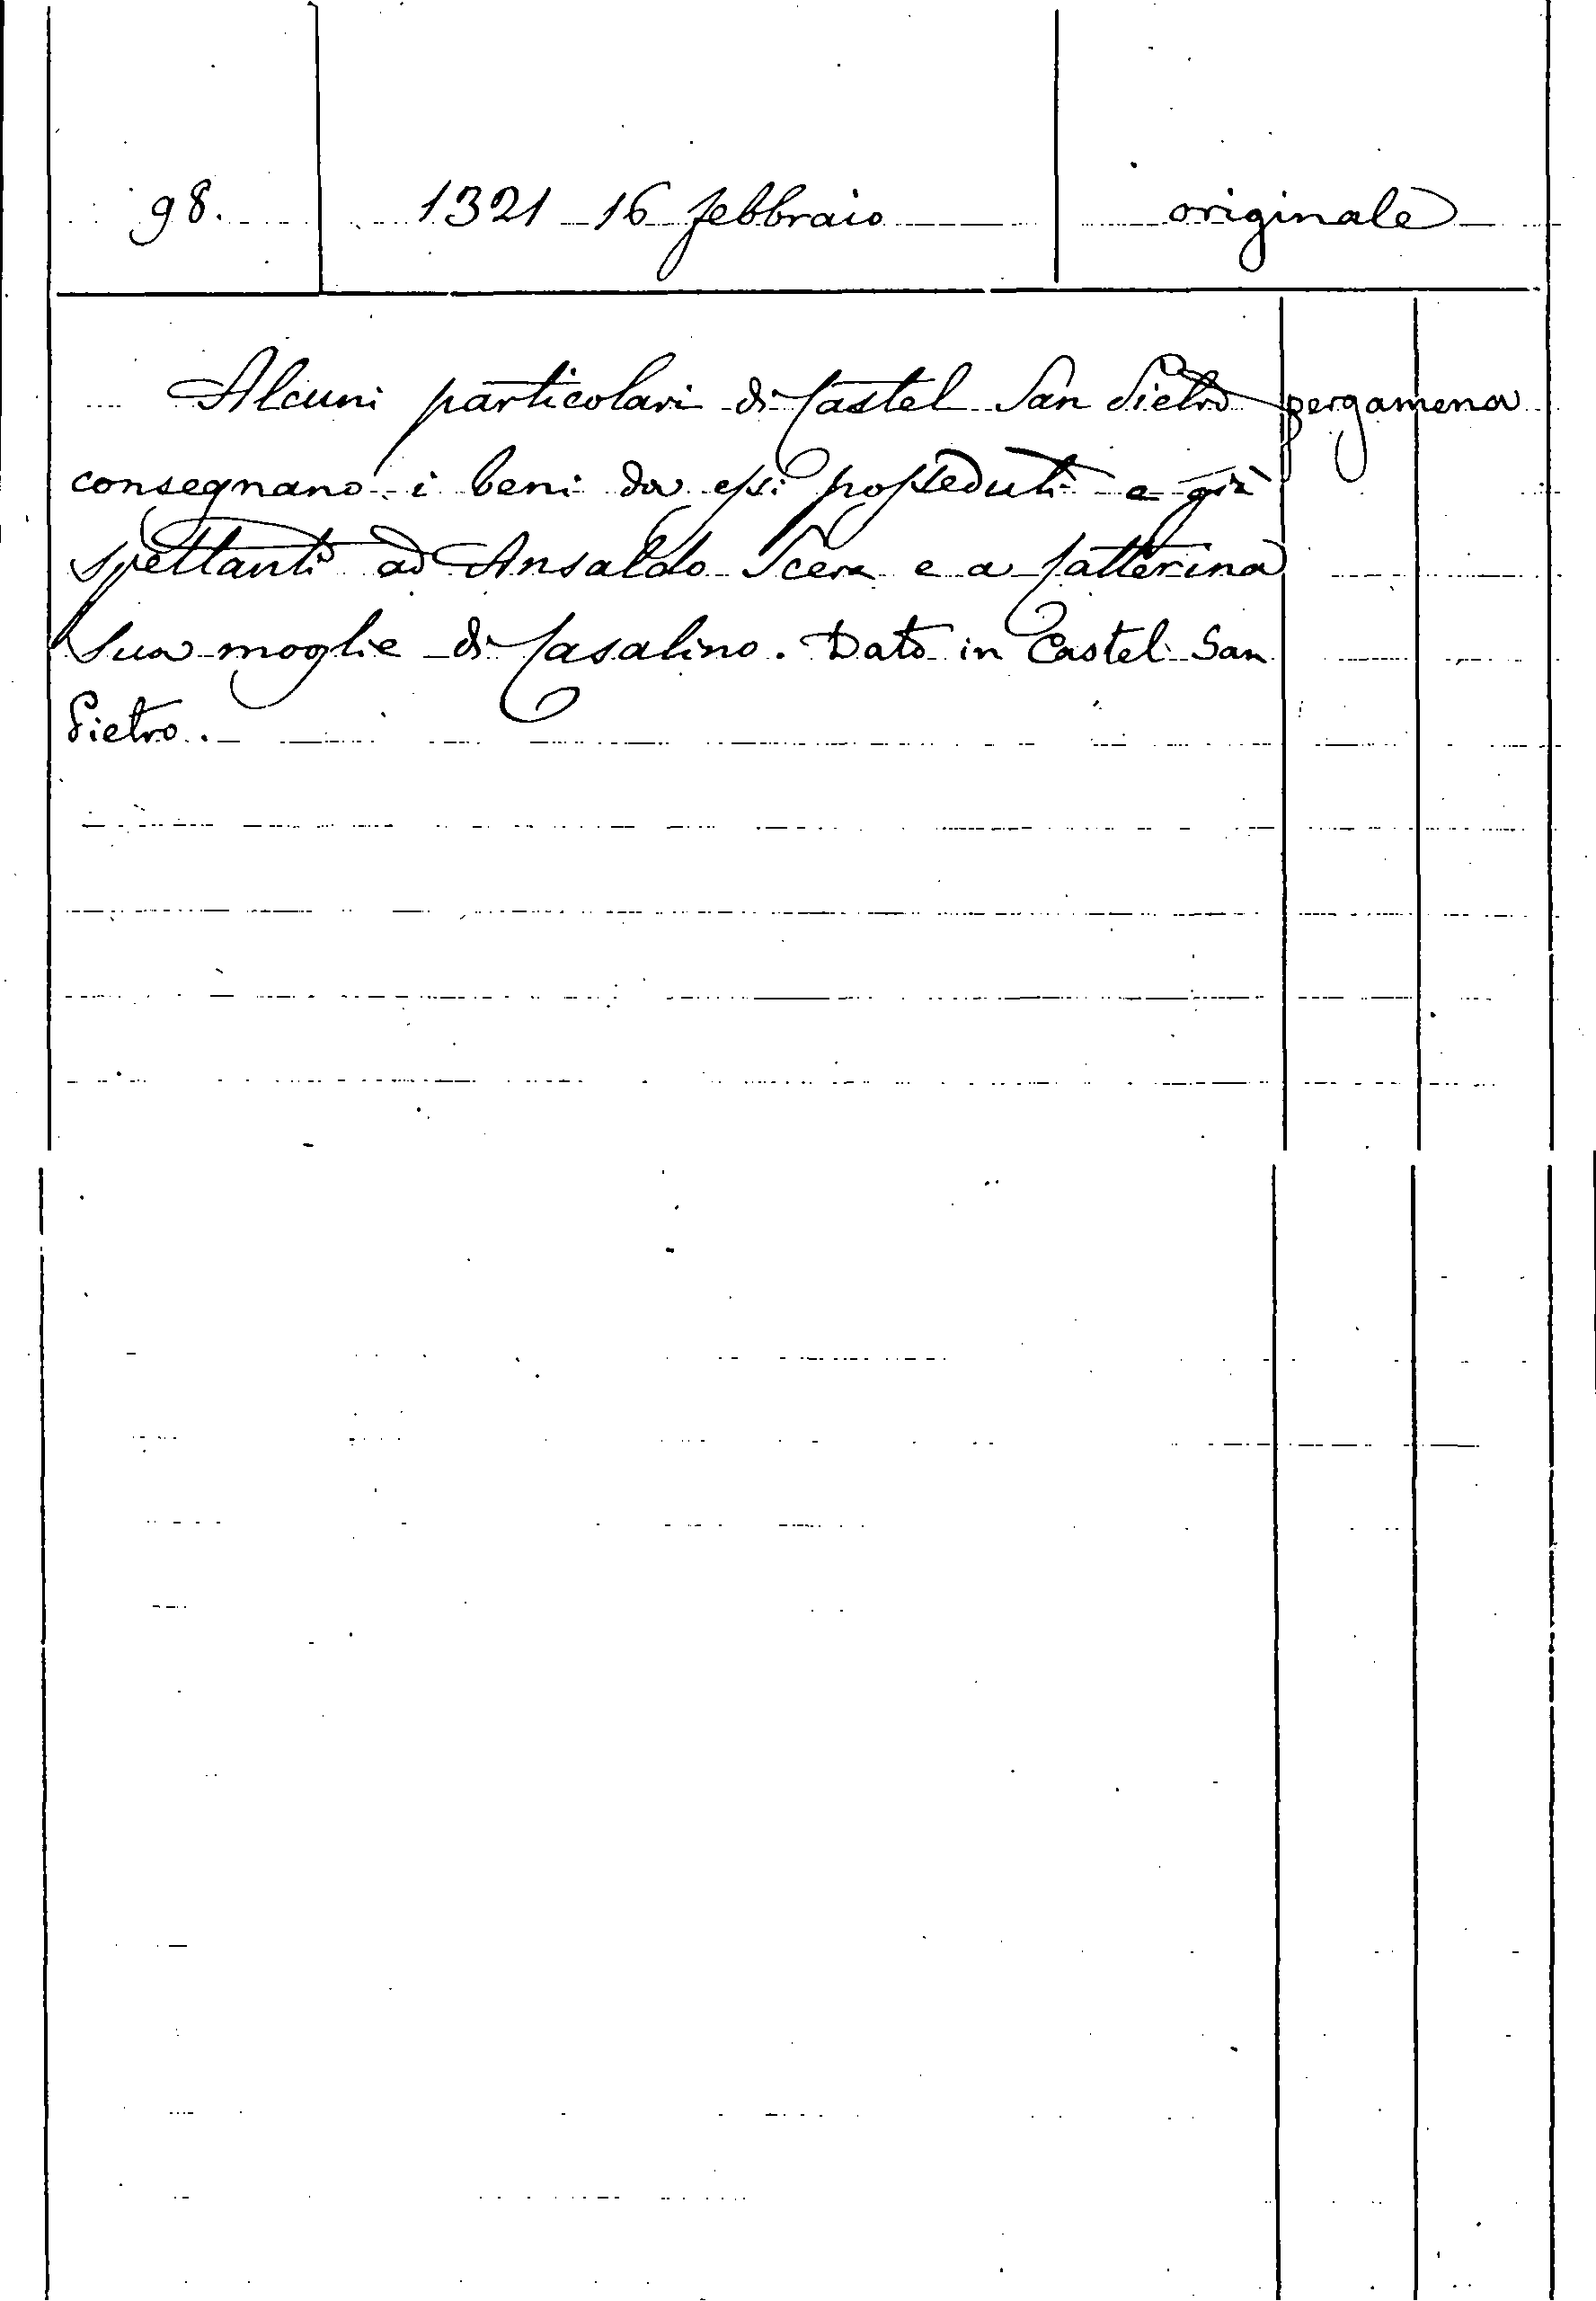 98. 1321 16 febbraio originale
Alcuni particolari di Castel San Pietro pergamena
consegnano i beni da essi posseduti e già
spettanti ad Ansaldo Scera e a Catterina
sua moglie di Casalino. Dato in Castel San
Pietro.